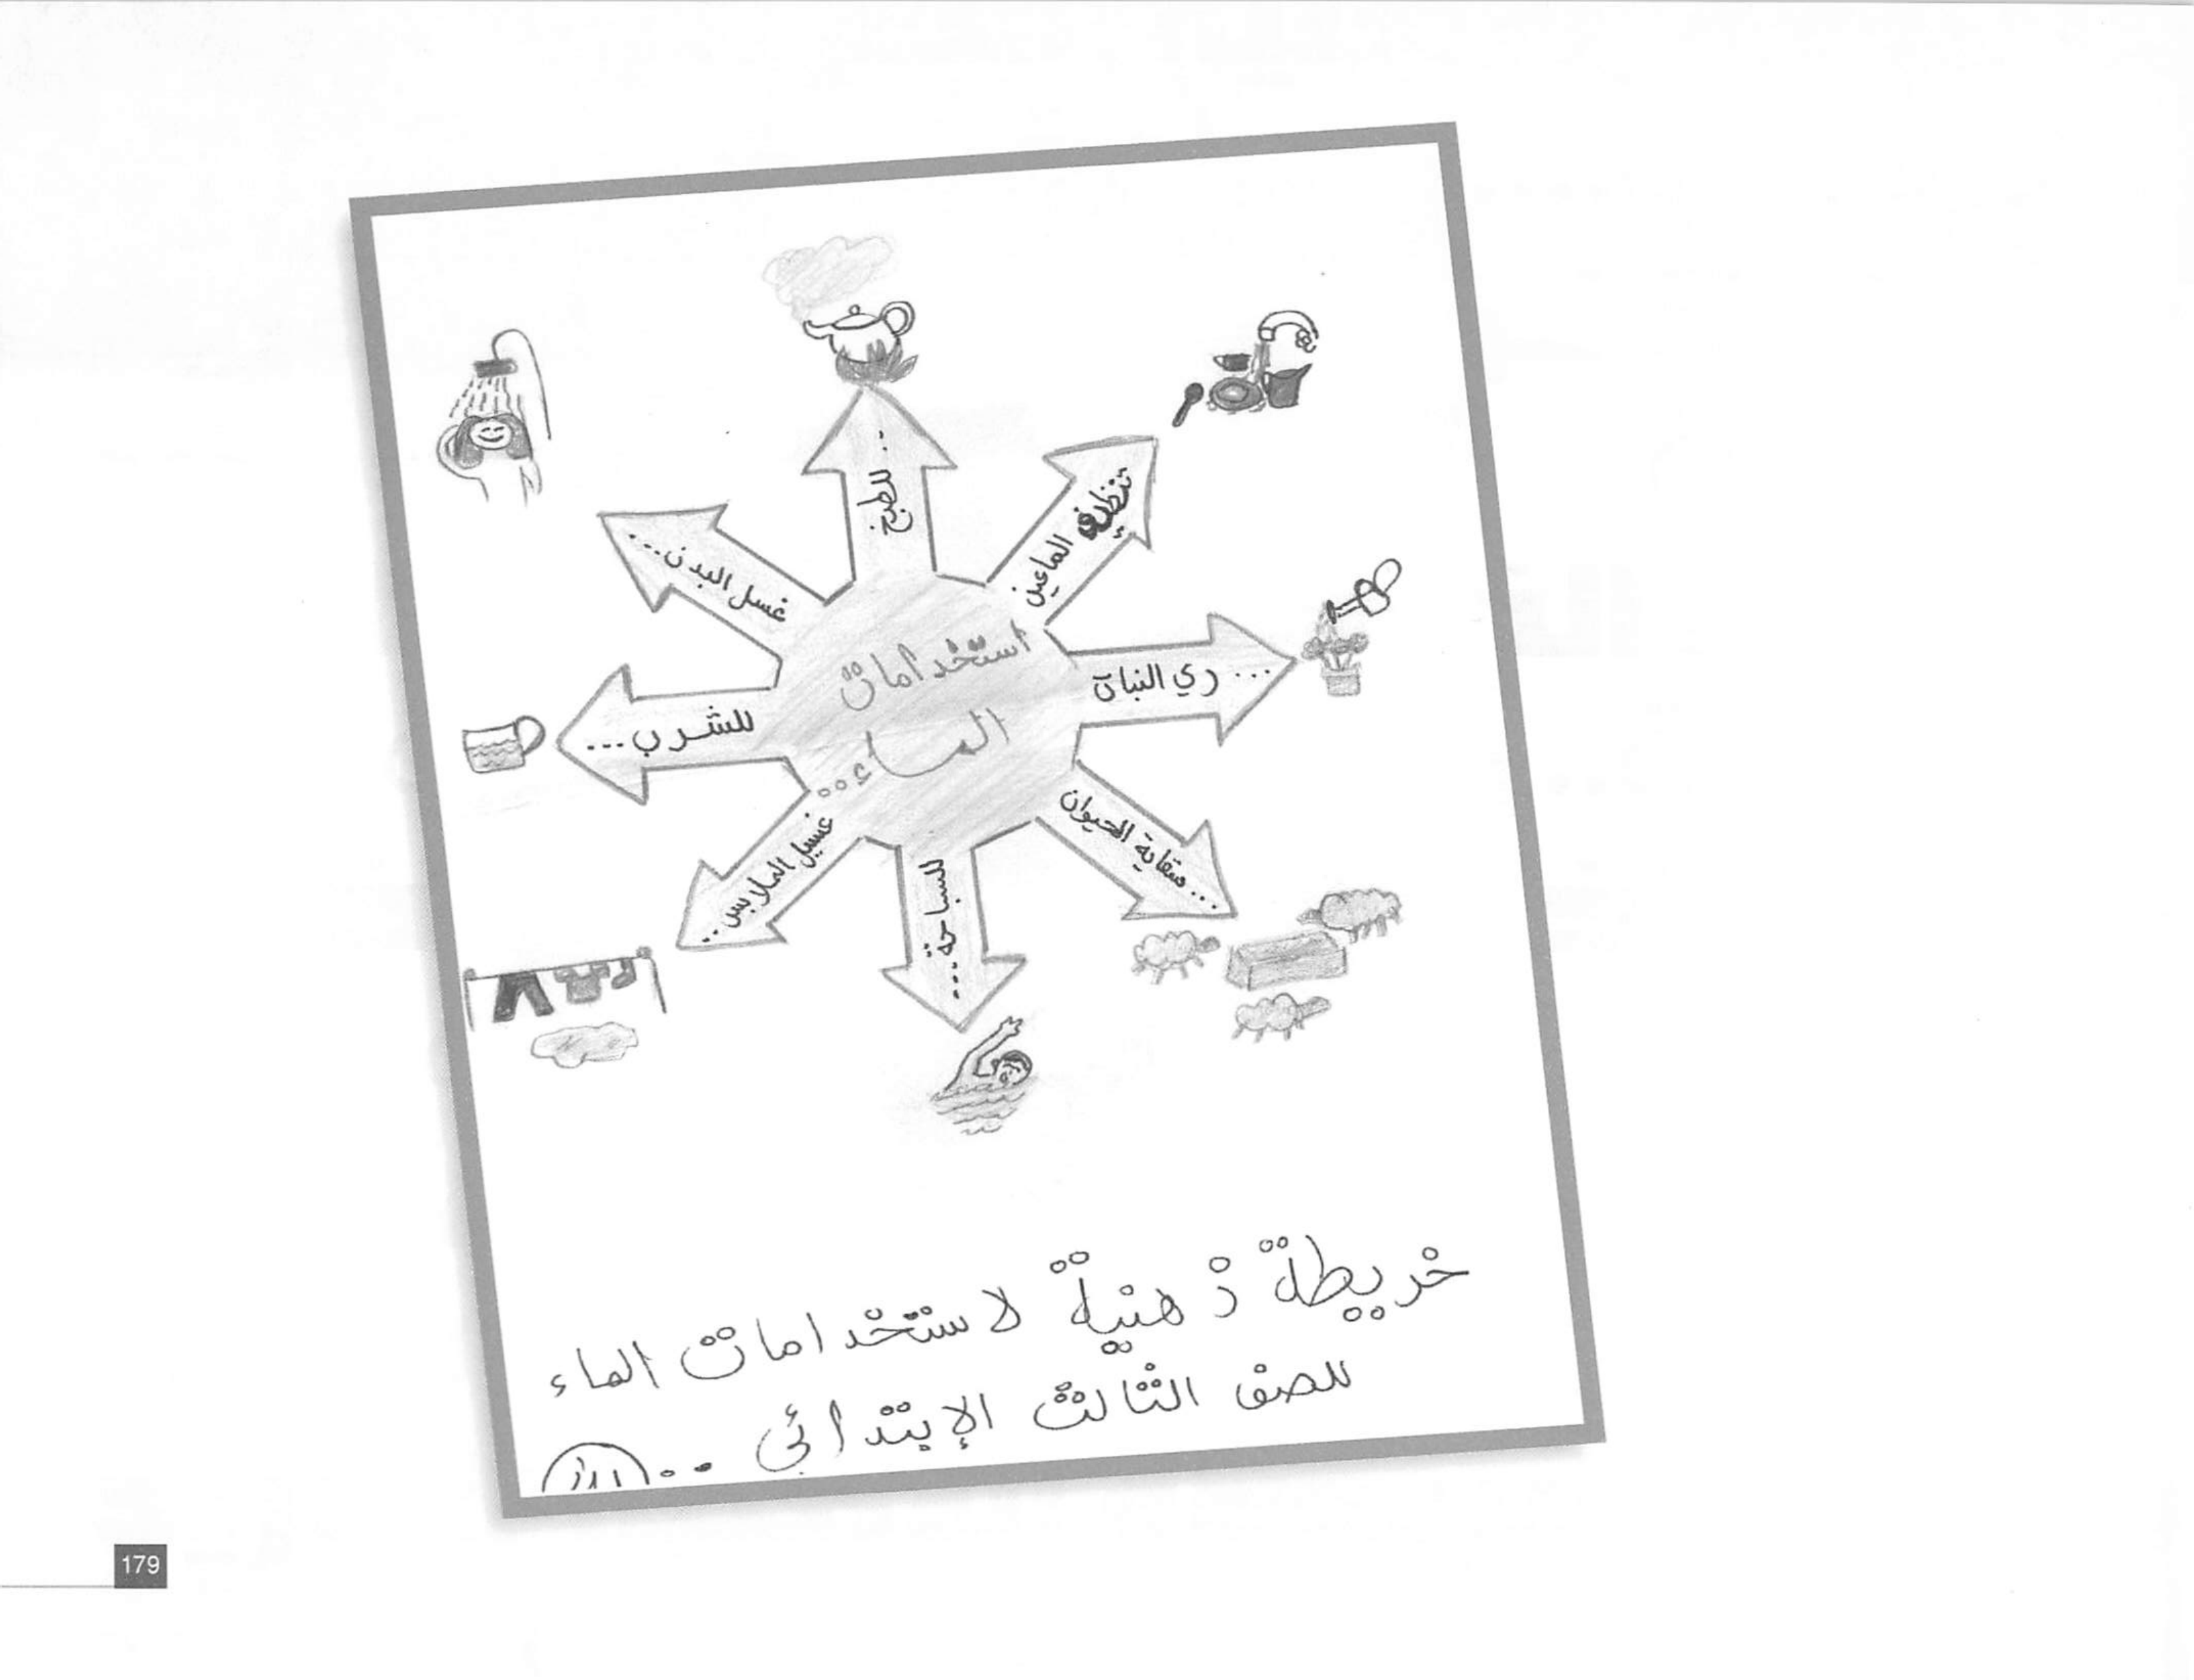 استخدامات
الماء...
للطبخ ..
تنظيف الماعين
ري النبات ...
سقاية الحيوان ...
للسباحة ...
غسيل الملابس ..
للشرب ...
غسل البدن ...
خريطة ذهنية لاستخدامات الماء
للصف الثالث الإبتدائي ..
179